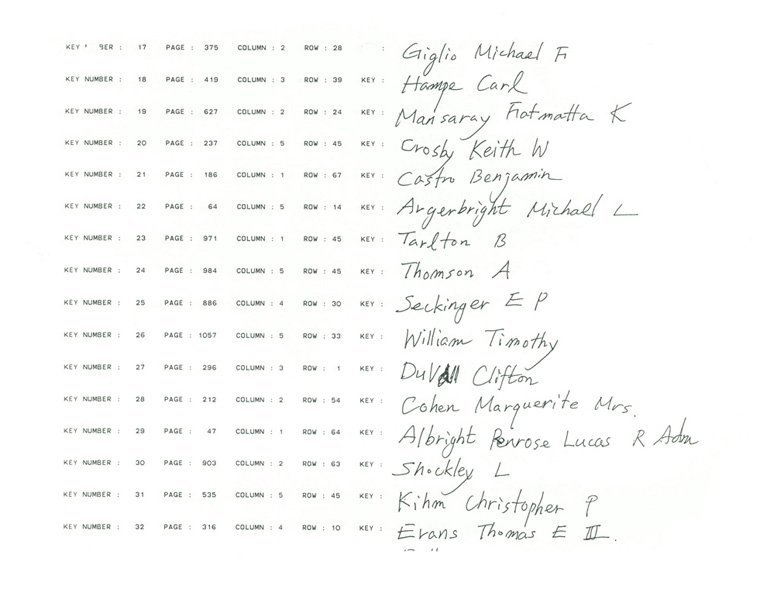 KEY BER : 17 PAGE : 375 COLUMN : 2 ROW : 28 : Giglio Michael F
KEY NUMBER : 18 PAGE : 419 COLUMN : 3 ROW : 39 KEY : Hampe Carl
KEY NUMBER : 19 PAGE : 627 COLUMN : 2 ROW : 24 KEY : Mansaray Fatmatta K
KEY NUMBER : 20 PAGE : 237 COLUMN : 5 ROW : 45 KEY : Crosby Keith W
KEY NUMBER : 21 PAGE : 186 COLUMN : 1 ROW : 67 KEY : Castro Benjamin
KEY NUMBER : 22 PAGE : 64 COLUMN : 5 ROW : 14 KEY : Argerbright Michael L
KEY NUMBER : 23 PAGE : 971 COLUMN : 1 ROW : 45 KEY : Tarlton B
KEY NUMBER : 24 PAGE : 984 COLUMN : 5 ROW : 45 KEY : Thomson A
KEY NUMBER : 25 PAGE : 886 COLUMN : 4 ROW : 30 KEY : Seckinger E P
KEY NUMBER : 26 PAGE : 1057 COLUMN : 5 ROW : 33 KEY : William Timothy
KEY NUMBER : 27 PAGE : 296 COLUMN : 3 ROW : 1 KEY : DuVall Clifton
KEY NUMBER : 28 PAGE : 212 COLUMN : 2 ROW : 54 KEY : Cohen Marguerite Mrs.
KEY NUMBER : 29 PAGE : 47 COLUMN : 1 ROW : 64 KEY : Albright Penrose Lucas R Adm
KEY NUMBER : 30 PAGE : 903 COLUMN : 2 ROW : 63 KEY : Shockley L
KEY NUMBER : 31 PAGE : 535 COLUMN : 5 ROW : 45 KEY : Kihm Christopher P
KEY NUMBER : 32 PAGE : 316 COLUMN : 4 ROW : 10 KEY : Evans Thomas E III.